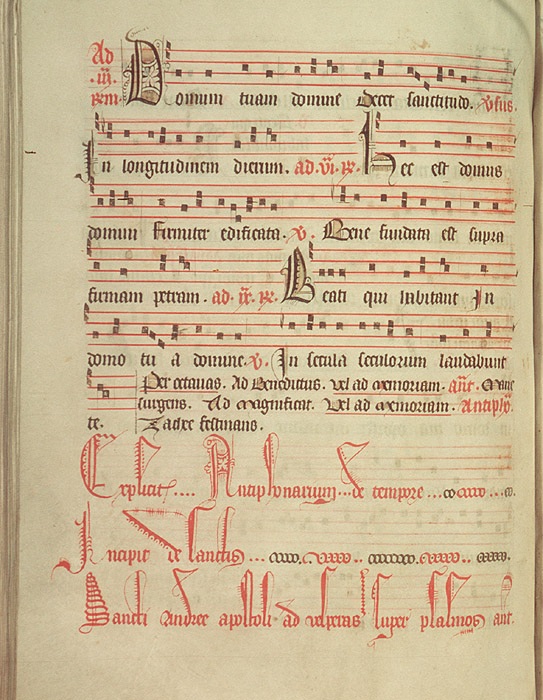 Ad Domum tuam domine Decet sanctitudo. Vsus.
.iii.
rem
In longitudinem dierum. ad .vi. Re. Hec est domus
domini firmiter edificata. V. Bene fundata est supra
firmam petram. ad .ix. Re. Beati qui habitant In
domo tu a domine. V. In secula seculorum laudabunt
Per octauas. Ad Benedictus. Vel ad memoriam. ant. Mane
surgens. Ad magnificat. Vel ad memoriam. Antiph
te. Zachee festinans.
Explicit .... Antiphonarium ... de tempore ...
Incipit de sanctis ...
Sancti Andree apostoli ad vesperas super psalmos ant.